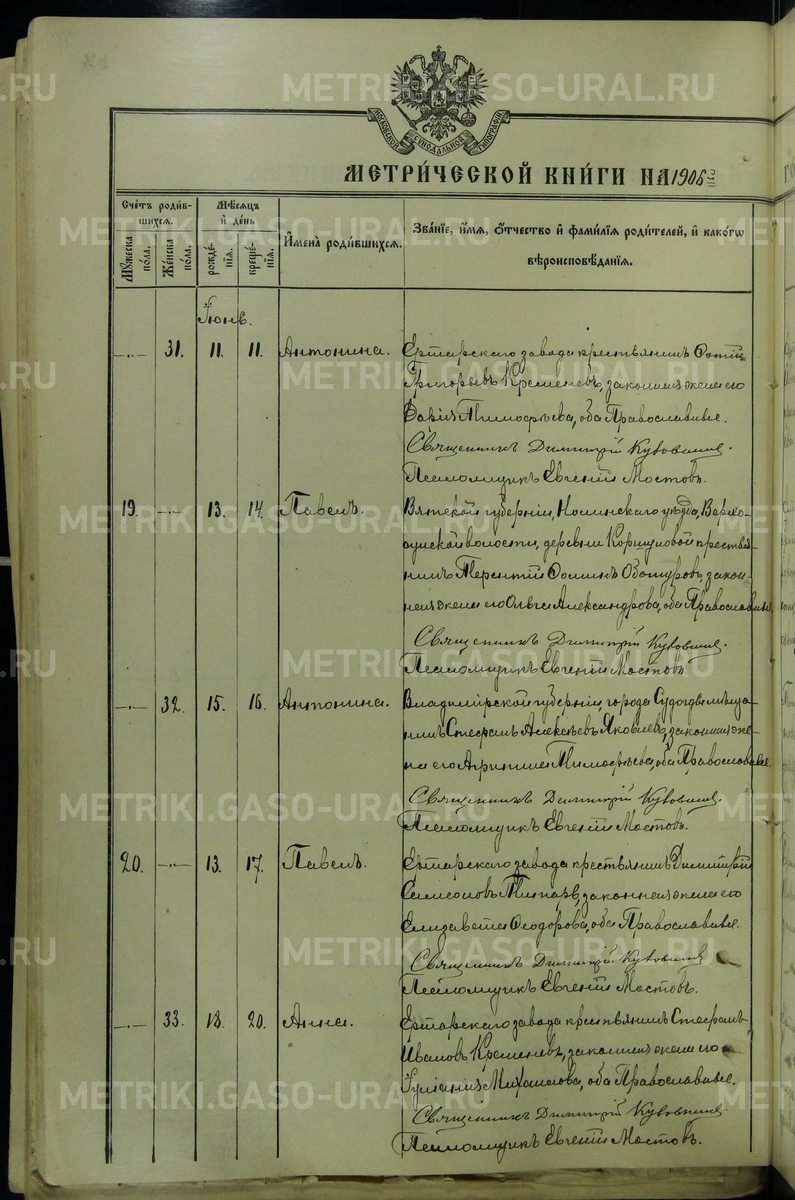 МОСКОВСКОЙ СѴНОДАЛЬНОЙ ТИПОГРАФІИ
МЕТРИ́ЧЕСКОЙ КНИ́ГИ НА 1906 г.
Сче́тъ роди́в-
шихся.
Му́жеска
по́ла.
Же́нска
по́ла.
Мѣ́сяцъ
и де́нь
рожде́-
нія.
креще́-
нія.
И́мена роди́вшихся.
Зва́ніе, и́мя, о́тчество и фами́лія роди́телей, и како́гѡ
вѣроисповѣ́данія.
Іюнь.
—„— 31. 11. 11. Антонина. Ертарскаго завода крестьянинъ Фотій
Григорьевъ Кременевъ, законная жена его
Дарія Тимофѣева, оба Православные.
Священникъ Димитрій
Псаломщикъ Евгеній Мостовъ.
19. —„— 13. 14. Павелъ. Вятской губерніи, Нолинскаго уѣзда, Верхо-
сунской волости, деревни Коршуновой крестья-
нинъ Терентій Ѳоминъ Обатуровъ, закон-
ная жена его Ольга Александрова, оба Православные.
Священникъ Димитрій
Псаломщикъ Евгеній Мостовъ.
—„— 32. 15. 16. Антонина. Владимірской губерніи, города Судогды мѣща-
нинъ Стефанъ Алексѣевъ Яковлевъ, законная же-
на его Агрипина Тимофѣева, оба Православные.
Священникъ Димитрій
Псаломщикъ Евгеній Мостовъ.
20. —„— 13. 17. Павелъ. Ертарскаго завода крестьянинъ Димитрій
Симеоновъ законная жена его
Елизавета Ѳеодорова, оба Православные.
Священникъ Димитрій
Псаломщикъ Евгеній Мостовъ.
—„— 33. 18. 20. Анна. Ертарскаго завода крестьянинъ Стефанъ
Ивановъ Кременевъ, законная жена его
Іуліанія Михаилова, оба Православные.
Священникъ Димитрій
Псаломщикъ Евгеній Мостовъ.
METRIKI.GASO-URAL.RU